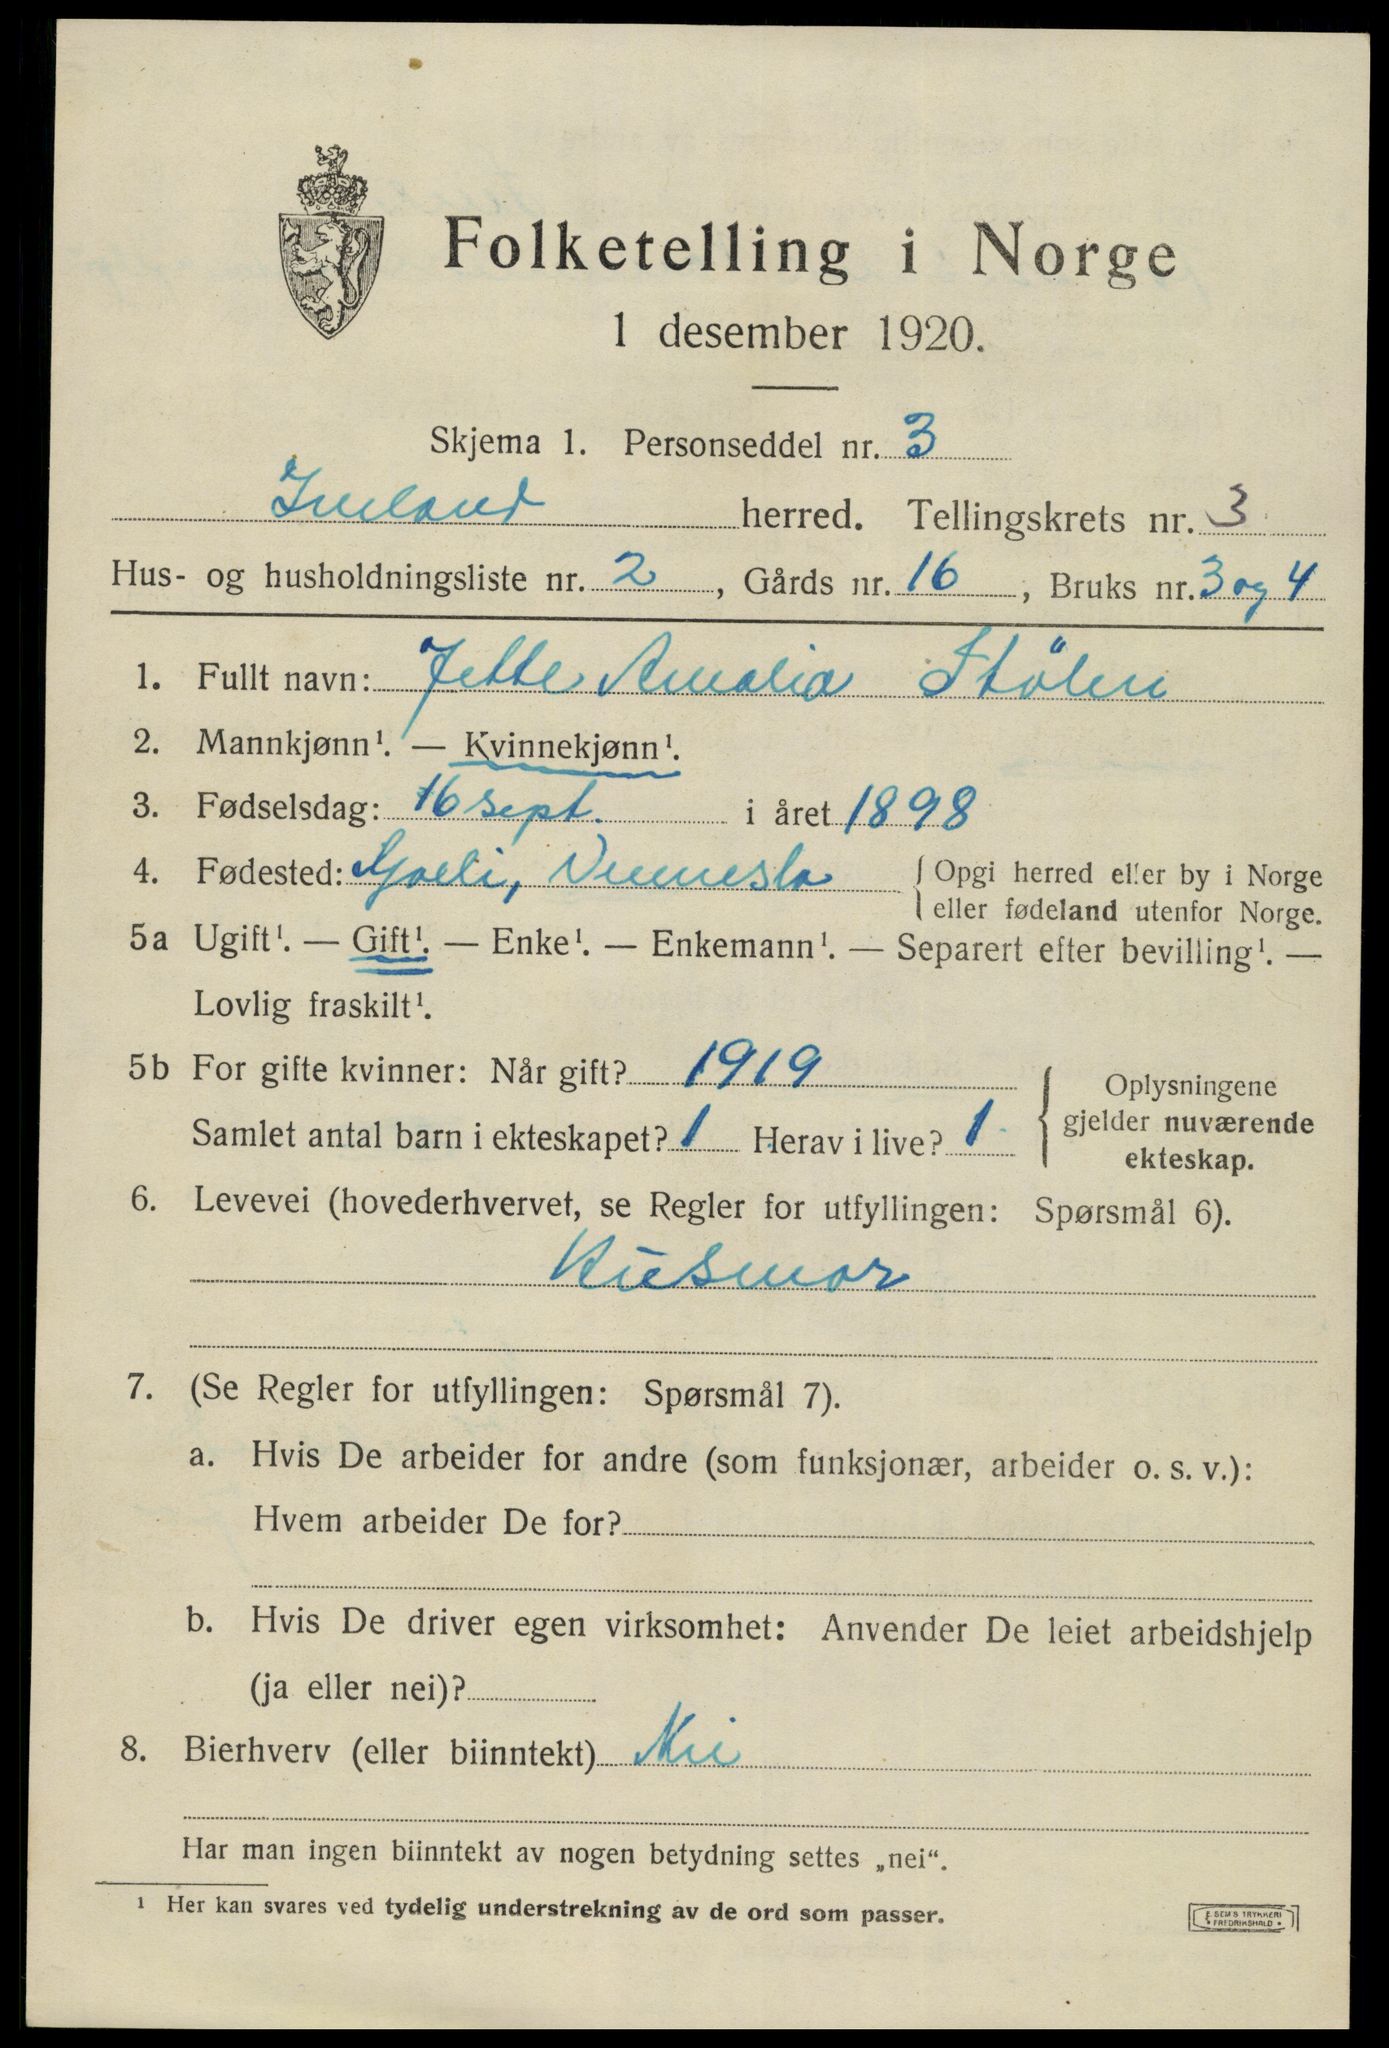 Folketelling i Norge
1 desember 1920.
Skjema 1. Personseddel nr. 3
Iveland herred. Tellingskrets nr. 3
Hus- og husholdningsliste nr. 2, Gårds nr. 16, Bruks nr. 3 og 4
1. Fullt navn: Jette Amalia Stölen
2. Mannkjønn¹. — Kvinnekjønn¹.
3. Fødselsdag: 16 sept. i året 1898
4. Fødested: Vennesla { Opgi herred eller by i Norge
eller fødeland utenfor Norge.
5a Ugift¹. — Gift¹. — Enke¹. — Enkemann¹. — Separert efter bevilling¹. —
Lovlig fraskilt¹.
5b For gifte kvinner: Når gift? 1919
Samlet antal barn i ekteskapet? 1 Herav i live? 1
{ Oplysningene
gjelder nuværende
ekteskap.
6. Levevei (hovederhvervet, se Regler for utfyllingen: Spørsmål 6).
Husmor
7. (Se Regler for utfyllingen: Spørsmål 7).
a. Hvis De arbeider for andre (som funksjonær, arbeider o. s. v.):
Hvem arbeider De for?
b. Hvis De driver egen virksomhet: Anvender De leiet arbeidshjelp
(ja eller nei)?
8. Bierhverv (eller biinntekt) Nei
Har man ingen biinntekt av nogen betydning settes „nei“.
¹ Her kan svares ved tydelig understrekning av de ord som passer.
E. SEMS TRYKKERI
• FREDRIKSHALD •